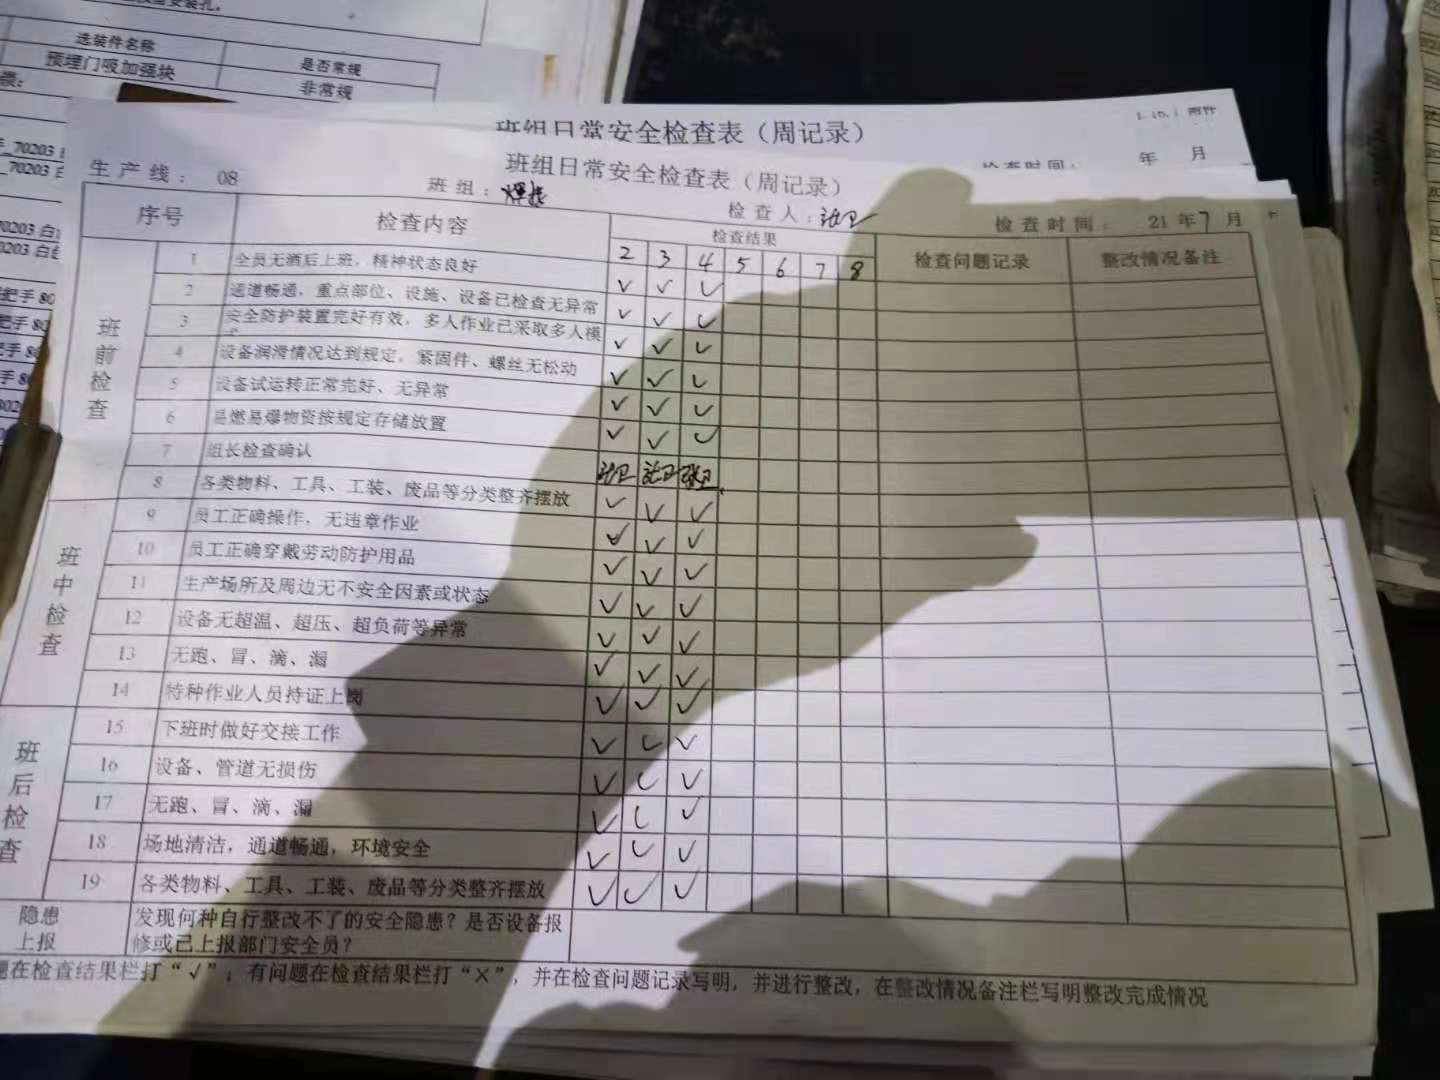 选装件名称 是否常规
预埋门吸加强块 非常规
班组日常安全检查表（周记录）
检查时间： 年 月
班组日常安全检查表（周记录）
生产线： 08 班组：焊接 检查人： 检查时间： 21年7月
序号 检查内容 检查结果 检查问题记录 整改情况备注
2 3 4 5 6 7 8
班前检查
1 全员无酒后上班，精神状态良好 ✓ ✓ ✓
2 通道畅通，重点部位、设施、设备已检查无异常 ✓ ✓ ✓
3 安全防护装置完好有效，多人作业已采取多人模 ✓ ✓ ✓
4 设备润滑情况达到规定，紧固件、螺丝无松动 ✓ ✓ ✓
5 设备试运转正常完好、无异常 ✓ ✓ ✓
6 易燃易爆物资按规定存储放置 ✓ ✓ ✓
7 组长检查确认
班中检查
8 各类物料、工具、工装、废品等分类整齐摆放 ✓ ✓ ✓
9 员工正确操作，无违章作业 ✓ ✓ ✓
10 员工正确穿戴劳动防护用品 ✓ ✓ ✓
11 生产场所及周边无不安全因素或状态 ✓ ✓ ✓
12 设备无超温、超压、超负荷等异常 ✓ ✓ ✓
13 无跑、冒、滴、漏 ✓ ✓ ✓
14 特种作业人员持证上岗 ✓ ✓ ✓
班后检查
15 下班时做好交接工作 ✓ ✓ ✓
16 设备、管道无损伤 ✓ ✓ ✓
17 无跑、冒、滴、漏 ✓ ✓ ✓
18 场地清洁，通道畅通，环境安全 ✓ ✓ ✓
19 各类物料、工具、工装、废品等分类整齐摆放 ✓ ✓ ✓
隐患上报 发现何种自行整改不了的安全隐患？是否设备报
修或已上报部门安全员？
在检查结果栏打“√”；有问题在检查结果栏打“×”，并在检查问题记录写明，并进行整改，在整改情况备注栏写明整改完成情况